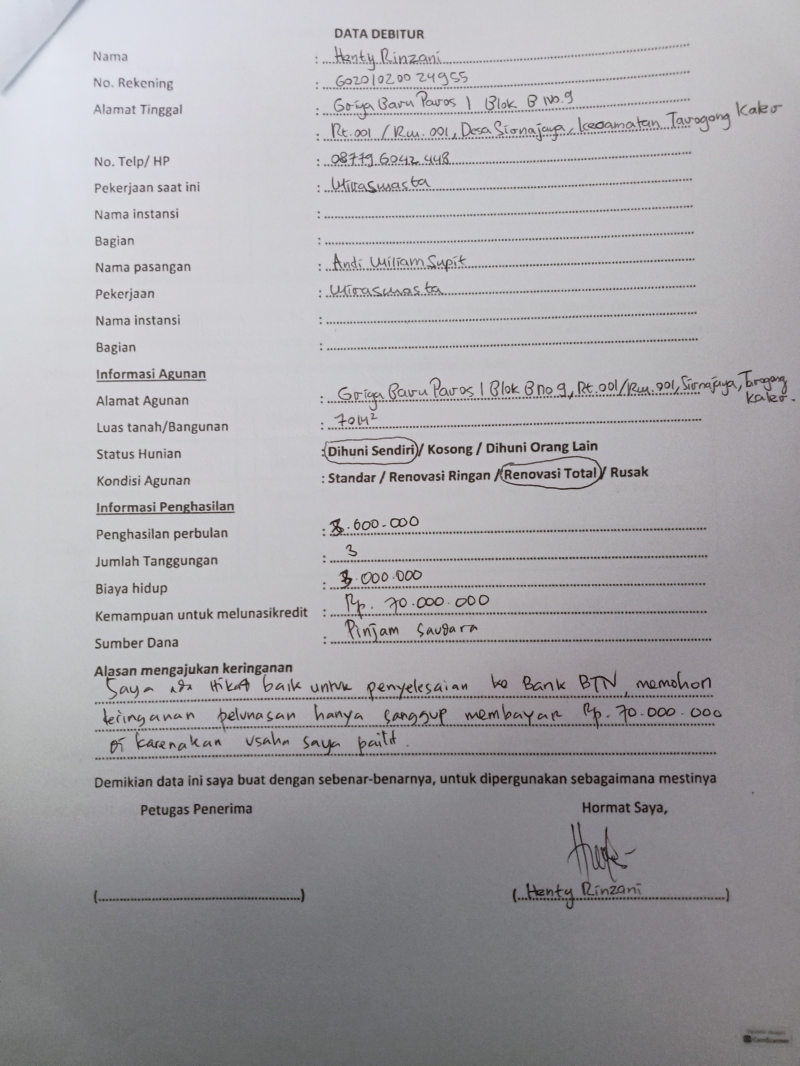 DATA DEBITUR
Nama : Henty Rinzani
No. Rekening : 60201020024955
Alamat Tinggal : Griya Baru Paros 1 Blok B No.9
: Rt.001 / Rw.001, Desa Sirnajaya, Kecamatan Tarogong Kaler
No. Telp/ HP : 087796042448
Pekerjaan saat ini : Wiraswasta
Nama instansi :
Bagian :
Nama pasangan : Andi Wiliam Supit
Pekerjaan : Wiraswasta
Nama instansi :
Bagian :
Informasi Agunan
Alamat Agunan : Griya Baru Paros 1 Blok B no 9, Rt.001/Rw.001, Sirnajaya, Tarogong Kaler.
Luas tanah/Bangunan : 70 M²
Status Hunian : Dihuni Sendiri / Kosong / Dihuni Orang Lain
Kondisi Agunan : Standar / Renovasi Ringan / Renovasi Total / Rusak
Informasi Penghasilan
Penghasilan perbulan : .600.000
Jumlah Tanggungan : 3
Biaya hidup : .000.000
Kemampuan untuk melunasikredit : Rp. 70.000.000
Sumber Dana : Pinjam Saudara
Alasan mengajukan keringanan
Saya ada itikat baik untuk penyelesaian ke Bank BTN, memohon
keringanan pelunasan hanya sanggup membayar Rp. 70.000.000
di karenakan usaha saya pailit.
Demikian data ini saya buat dengan sebenar-benarnya, untuk dipergunakan sebagaimana mestinya
Petugas Penerima Hormat Saya,
(....) ( Henty Rinzani )
CamScanner